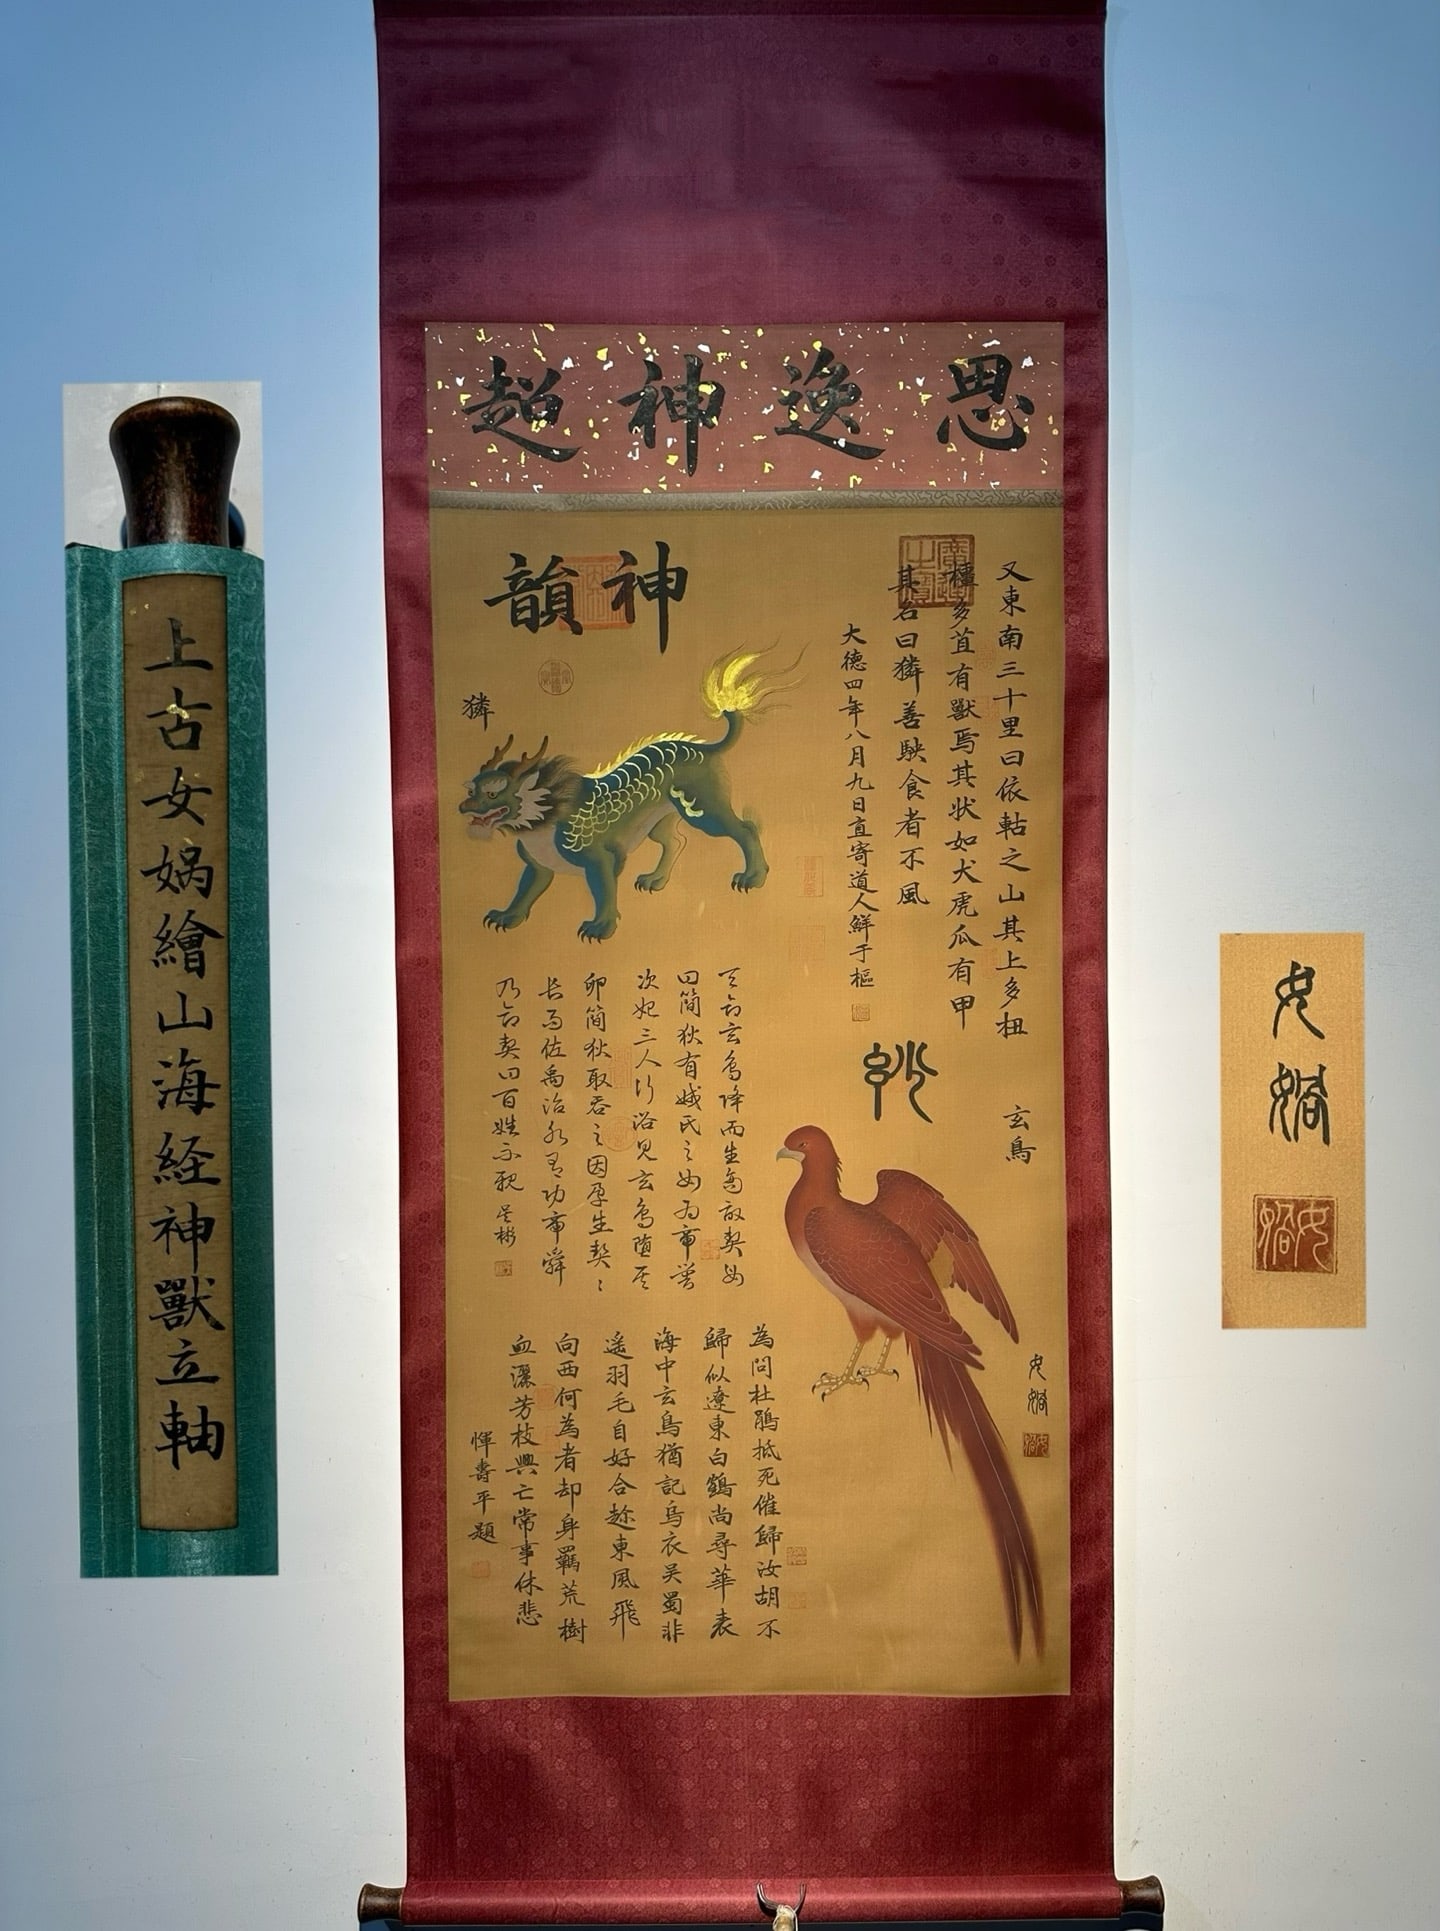 思逸神超
神韻
獜
又東南三十里曰依軲之山其上多杻
橿多苴有獸焉其狀如犬虎爪有甲
其名曰獜善駚食者不風
大德四年八月九日直寄道人鮮于樞
玄鳥
天命玄鳥降而生商故契母
曰簡狄有娀氏之女為帝嚳
次妃三人行浴見玄鳥墮其
卵簡狄取吞之因孕生契契
長而佐禹治水有功帝舜
乃命契曰百姓不親 吳彬
為問杜鵑抵死催歸汝胡不
歸似遼東白鶴尚尋華表
海中玄鳥猶記烏衣吳蜀非
遥羽毛自好合趂東風飛
向西何為者却身羈荒樹
血灑芳枝興亡常事休悲
惲壽平題
女媧
上古女娲繪山海経神獸立軸
女媧
女媧